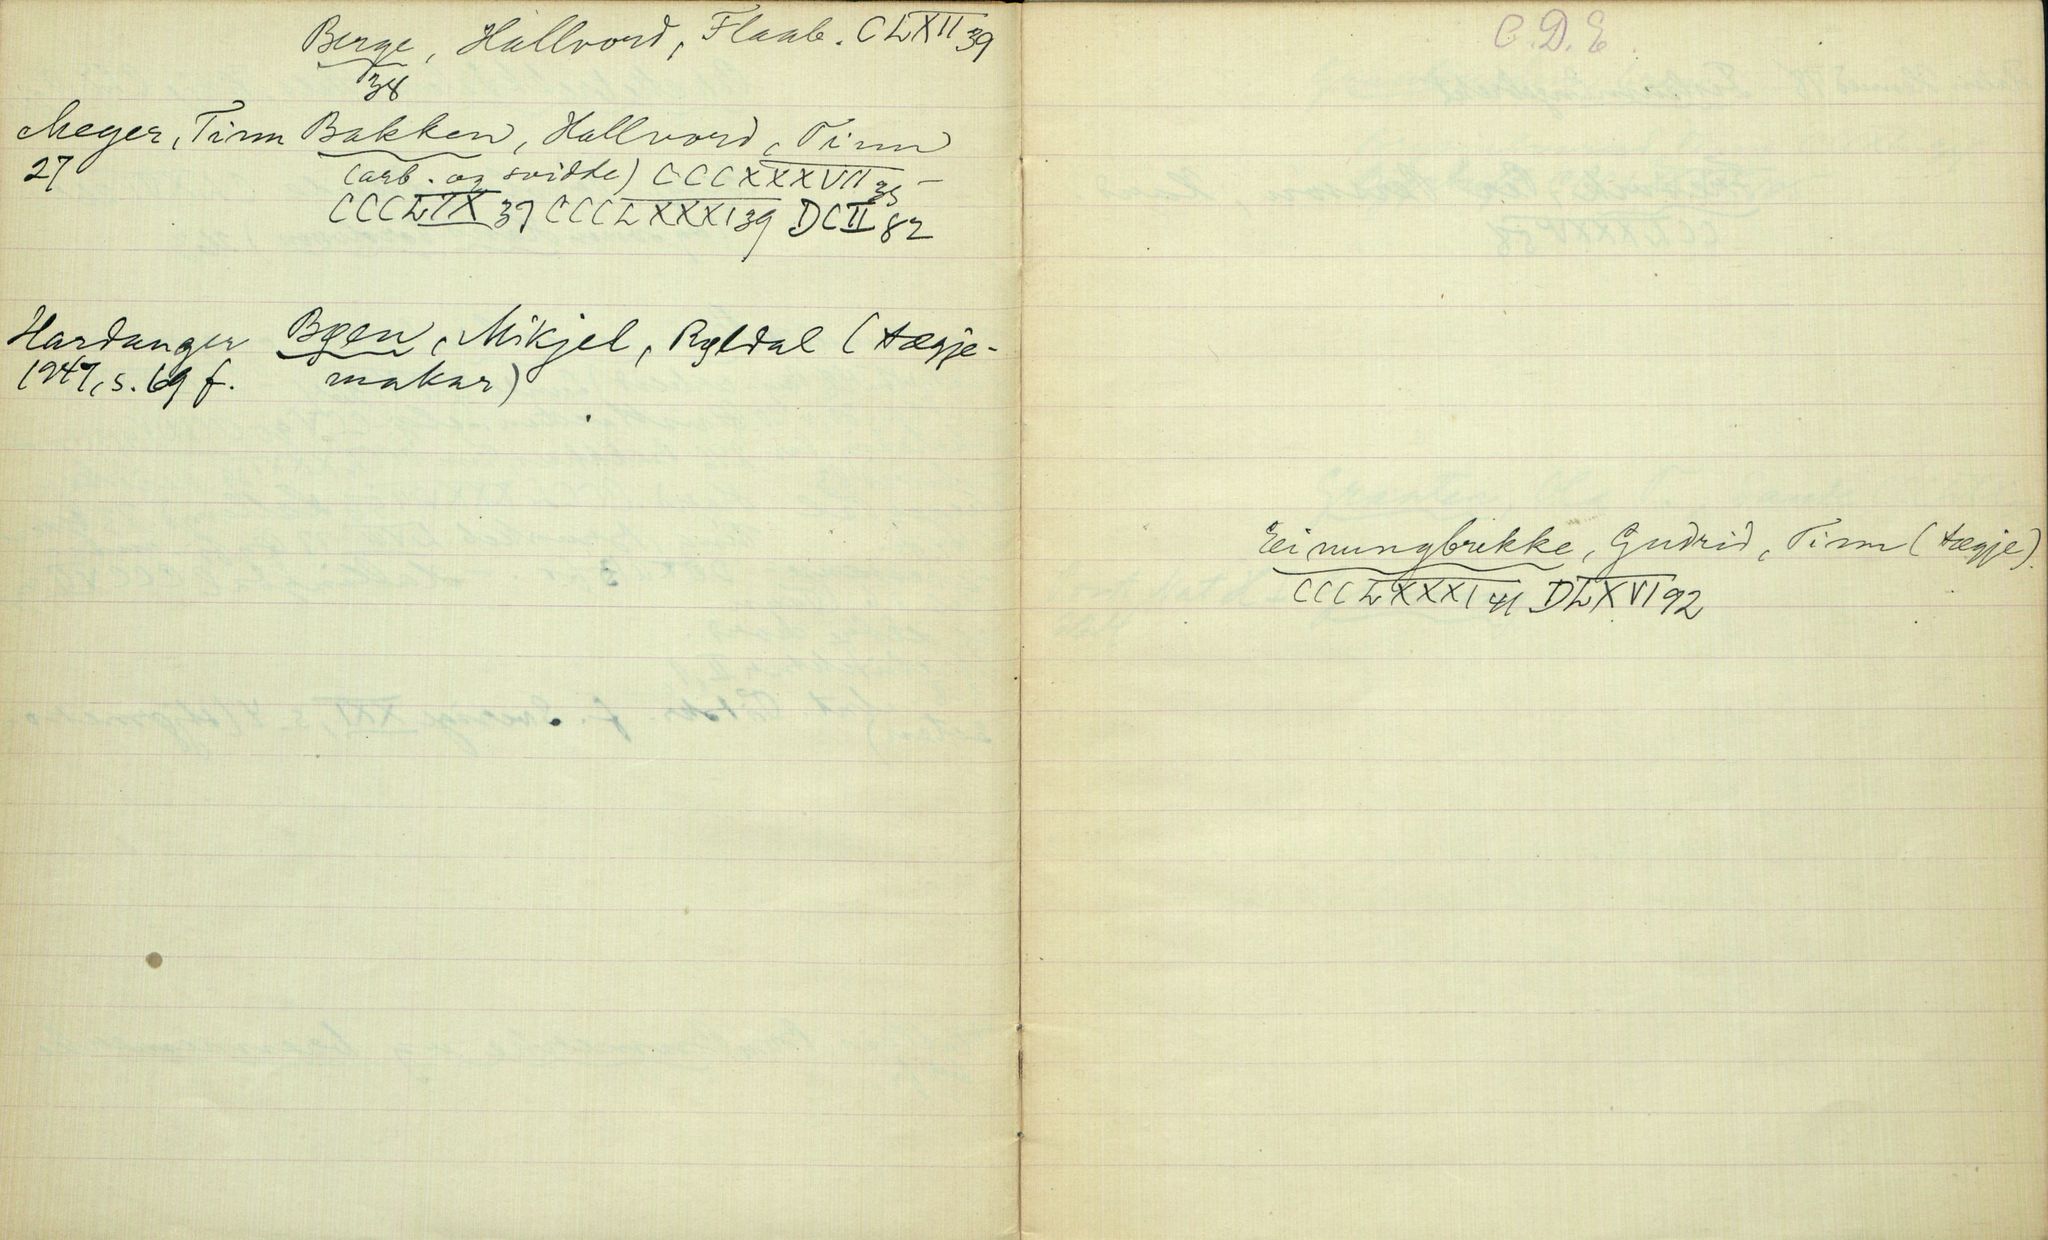 Berge, Hallvord, Flaab. CLXII 39
38
Meyer, Tinn
27
Bakken, Hallvord, Tinn
(arb. og svidde) CCCXXXVII 35 -
CCCLIX 37 CCCLXXXI 39 DCII 82
Hardanger
1947, s. 69 f.
Bøen, Mikjel, Røldal (tægje-
makar)
C.D.E.
Einungbrekke, Gudrid, Tinn (tægje).
CCCLXXXI 41 DLXVI 92